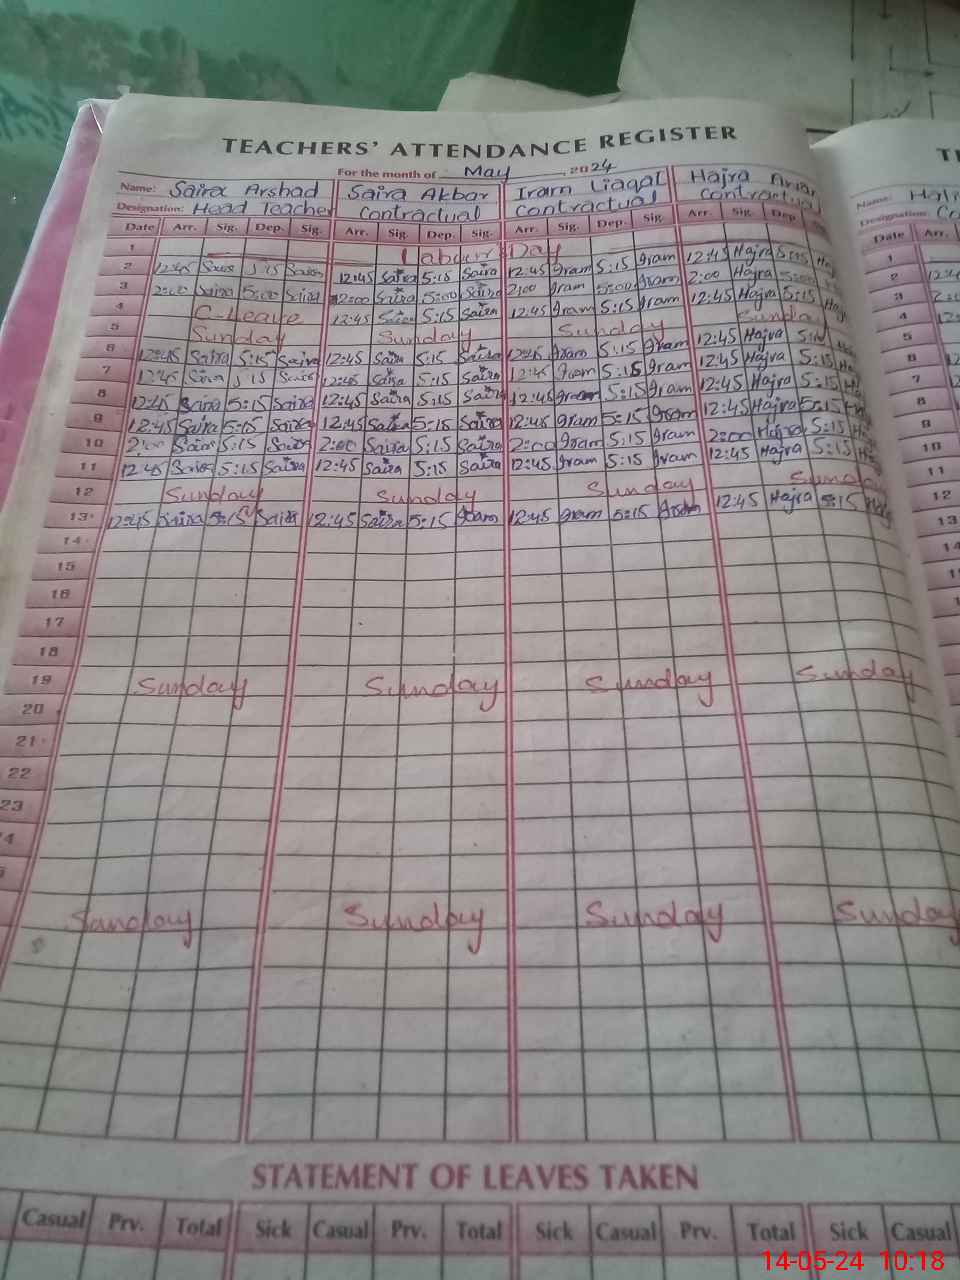 TEACHERS' ATTENDANCE REGISTER
For the month of May, 2024
Name: Saira Arshad Saira Akbar Iram Liaqat Hajra Name:
Designation: Head Teacher Contractual Contractual Contractual Designation:
Date Arr. Sig. Dep. Sig. Arr. Sig. Dep. Sig. Arr. Sig. Dep. Sig. Arr. Sig. Dep. Date Arr.
1 Labour Day 1
2 12:45 Saira 5:15 Saira 12:45 Saira 5:15 Saira 12:45 Iram 5:15 Iram 12:45 Hajra 2
3 2:00 Saira 5:00 Saira 2:00 Saira 5:00 Saira 2:00 Iram 5:00 Iram 2:00 Hajra 5:00 3
4 C-Leave 12:45 Saira 5:15 Saira 12:45 Iram 5:15 Iram 12:45 Hajra 5:15 4
5 Sunday Sunday Sunday Sunday 5
6 12:45 Saira 5:15 Saira 12:45 Saira 5:15 Saira 12:45 Iram 5:15 Iram 12:45 Hajra 5:15 6
7 12:45 Saira 5:15 Saira 12:45 Saira 5:15 Saira 12:45 Iram 5:15 Iram 12:45 Hajra 5:15 7
8 12:45 Saira 5:15 Saira 12:45 Saira 5:15 Saira 12:45 Iram 5:15 Iram 12:45 Hajra 5:15 8
9 12:45 Saira 5:15 Saira 12:45 Saira 5:15 Saira 12:45 Iram 5:15 Iram 12:45 Hajra 5:15 9
10 2:00 Saira 5:15 Saira 2:00 Saira 5:15 Saira 2:00 Iram 5:15 Iram 2:00 Hajra 5:15 10
11 12:45 Saira 5:15 Saira 12:45 Saira 5:15 Saira 12:45 Iram 5:15 Iram 12:45 Hajra 5:15 11
12 Sunday Sunday Sunday Sunday 12
13 12:45 Saira 5:15 Saira 12:45 Saira 5:15 Iram 12:45 Iram 5:15 Iram 12:45 Hajra 5:15 13
14
15
16
17
18
19 Sunday Sunday Sunday Sunday
20
21
22
23
Sunday Sunday Sunday Sunday
STATEMENT OF LEAVES TAKEN
Casual Prv. Total Sick Casual Prv. Total Sick Casual Prv. Total Sick Casual
14-05-24 10:18